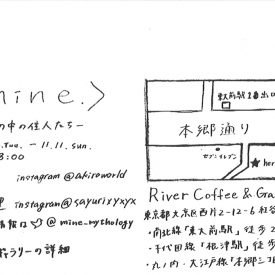 mine.>
の中の住人たち-
.Tue. - 11.11.Sun.
3:00
instagram @akireworld
instagram@sayurixyxyx
情報は @mine_mythology
ギャラリーの詳細
東大前駅1番出口
本郷通り
セブンイレブン
★her
River Coffee & Ga
東京都文京区西片2-12-6
・南北線「東大前駅」徒歩2
・千代田線「根津駅」徒歩
・丸ノ内・大江戸線「本郷三